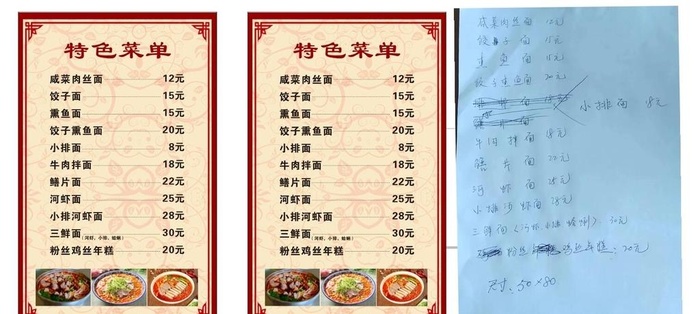 特色菜单
咸菜肉丝面 12元
饺子面 15元
熏鱼面 15元
饺子熏鱼面 20元
小排面 8元
牛肉拌面 18元
鳝片面 22元
河虾面 25元
小排河虾面 28元
三鲜面(河虾、小排、蛤蜊) 30元
粉丝鸡丝年糕 20元
特色菜单
咸菜肉丝面 12元
饺子面 15元
熏鱼面 15元
饺子熏鱼面 20元
小排面 8元
牛肉拌面 18元
鳝片面 22元
河虾面 25元
小排河虾面 28元
三鲜面(河虾、小排、蛤蜊) 30元
粉丝鸡丝年糕 20元
咸菜肉丝面 12元
饺子面 15元
熏鱼面 15元
饺子熏鱼面 20元
小排面 8元
牛肉拌面 18元
鳝片面 22元
河虾面 25元
小排河虾面 28元
三鲜面(河虾、小排、蛤蜊) 30元
粉丝 鸡丝年糕 20元
尺寸:50×80